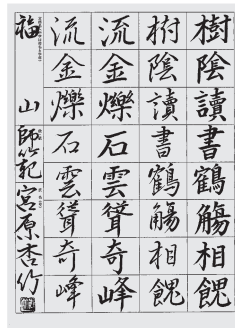 樹陰讀書鶴觴相餽
樹陰讀書鶴觴相餽
流金爍石雲聳奇峰
流金爍石雲聳奇峰
福山 師範 宮原杏竹